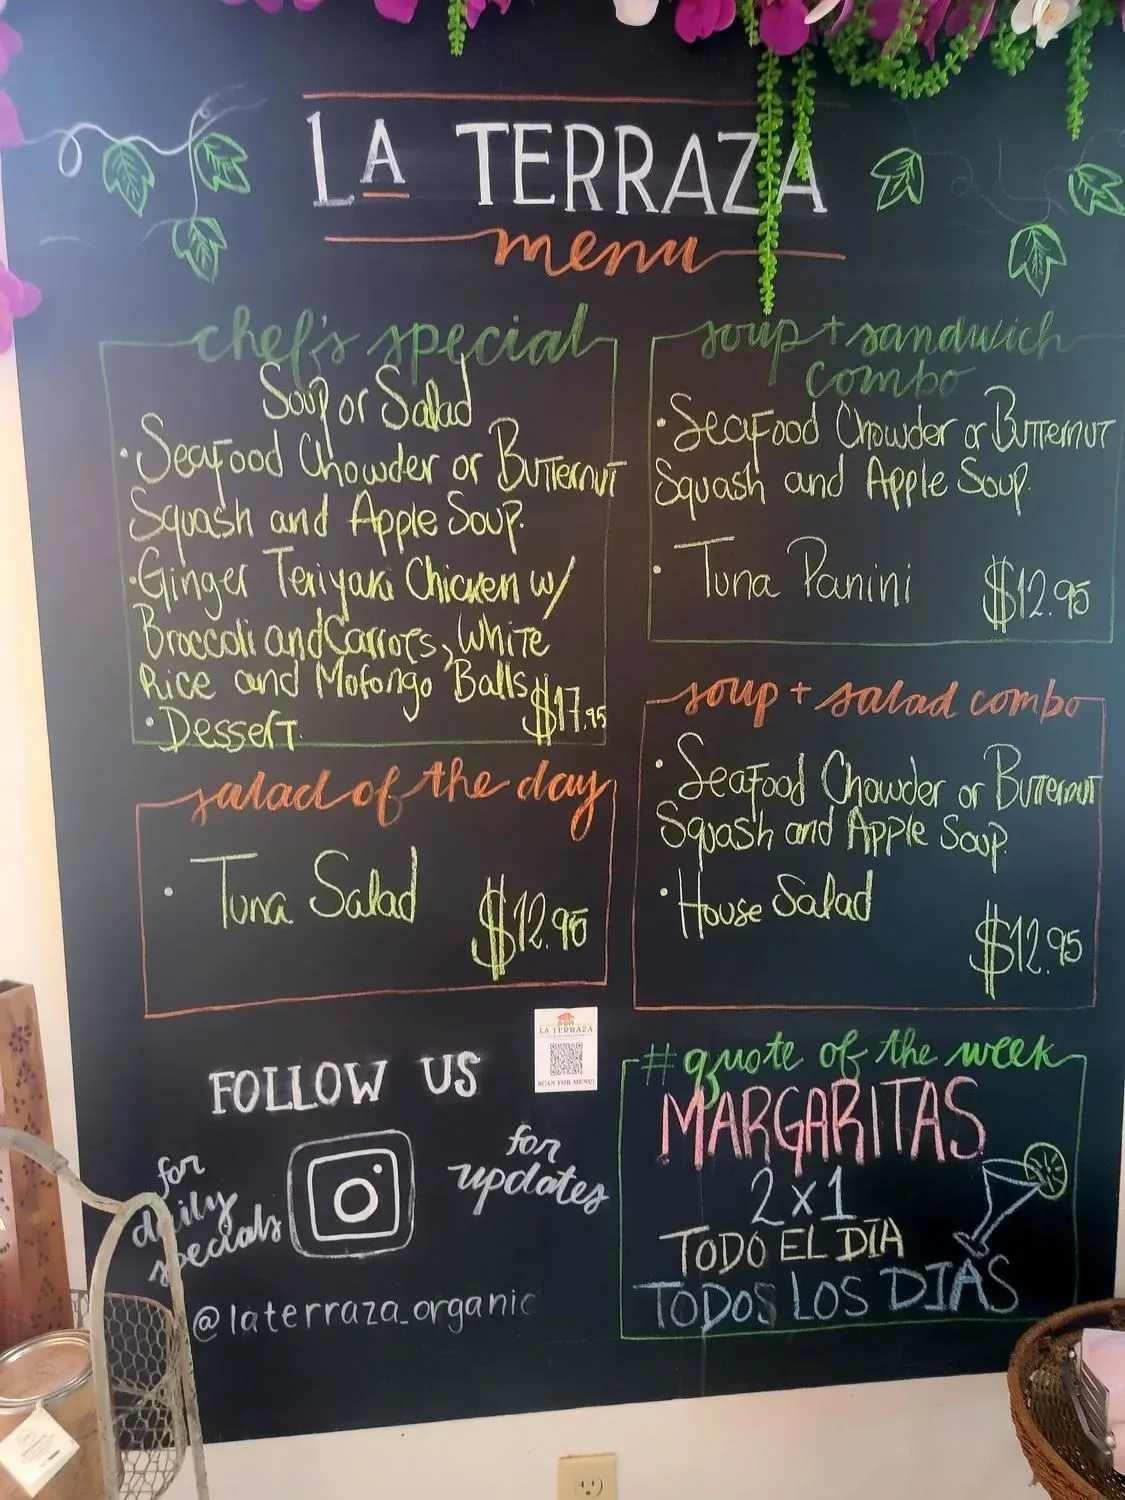 LA TERRAZA
menu
chef's special
Soup or Salad
• Seafood Chowder or Butternut
Squash and Apple Soup.
• Ginger Teriyaki Chicken w/
Broccoli and Carrots, White
Rice and Mofongo Balls
• Dessert. $17.95
salad of the day
• Tuna Salad
$12.95
soup + sandwich
combo
• Seafood Chowder or Butternut
Squash and Apple Soup.
• Tuna Panini $12.95
soup + salad combo
• Seafood Chowder or Butternut
Squash and Apple Soup.
• House Salad
$12.95
FOLLOW US
for
daily
specials
for
updates
@laterraza_organic
LA TERRAZA
SCAN FOR MENU!
#quote of the week
MARGARITAS
2x1
TODO EL DIA
TODOS LOS DIAS